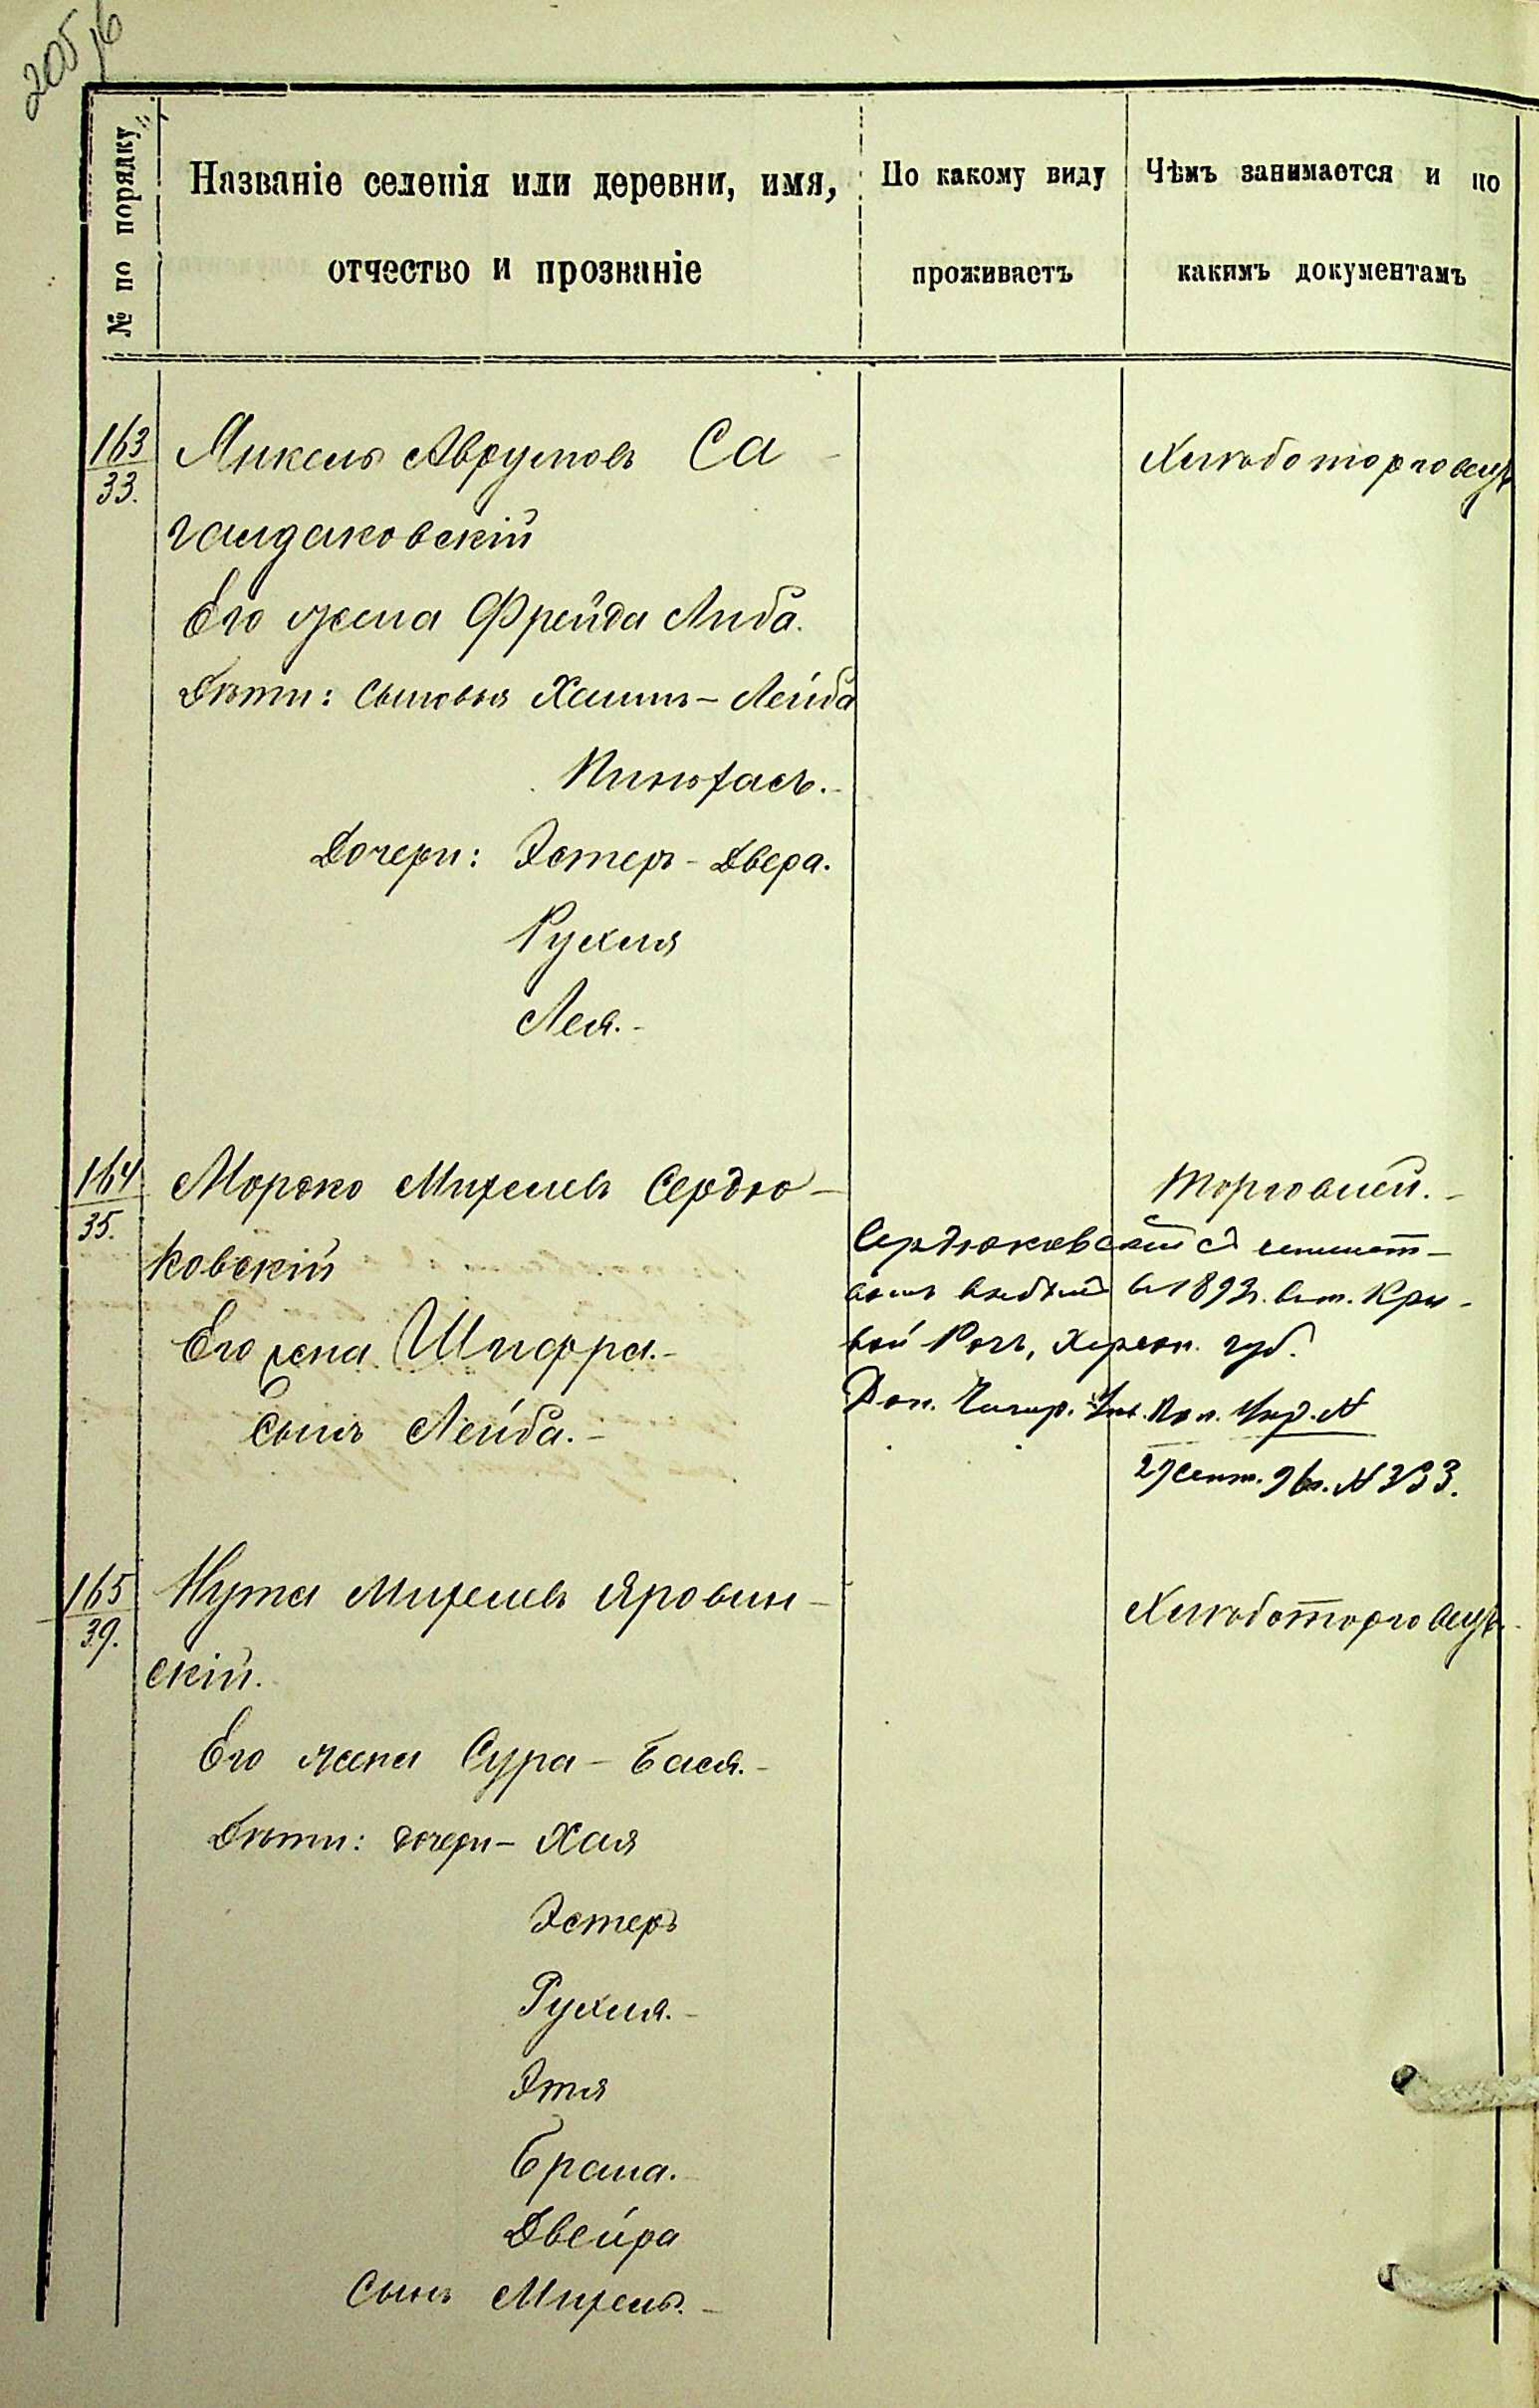 205 / 6
№ по порядку
Названіе селенія или деревни, имя,
отчество и прозваніе
По какому виду
проживаетъ
Чѣмъ занимается и по
какимъ документамъ
163
33.
Янкель Аврумовъ Са
гайдаковскій
Его жена Фрейда Либа.
Дѣти: сыновья Хаимъ - Лейба
Пинхасъ.
Дочери: Эстеръ - Двера.
Рухля
Лея.
Хлѣботорговецъ
164
35.
Мошко Михелевъ Сердю-
ковскій
Его жена Шифра.
Сынъ Лейба.
Торговлей.
Сердюковскій съ семейст-
вомъ выбылъ въ 1893 г. въ м. Кри-
вой Рогъ, Херсон. губ.
Дон. Чигир. Уѣ. Пол. Упр. №
27 Сент. 96 г. № 333.
165
39.
Нута Михелевъ Яровин-
скій.
Его жена Сура - Бася.
Дѣти: дочери - Хая
Эстеръ
Рухля.
Этя
Брана.
Двейра
Сынъ Михель.
Хлѣботорговецъ